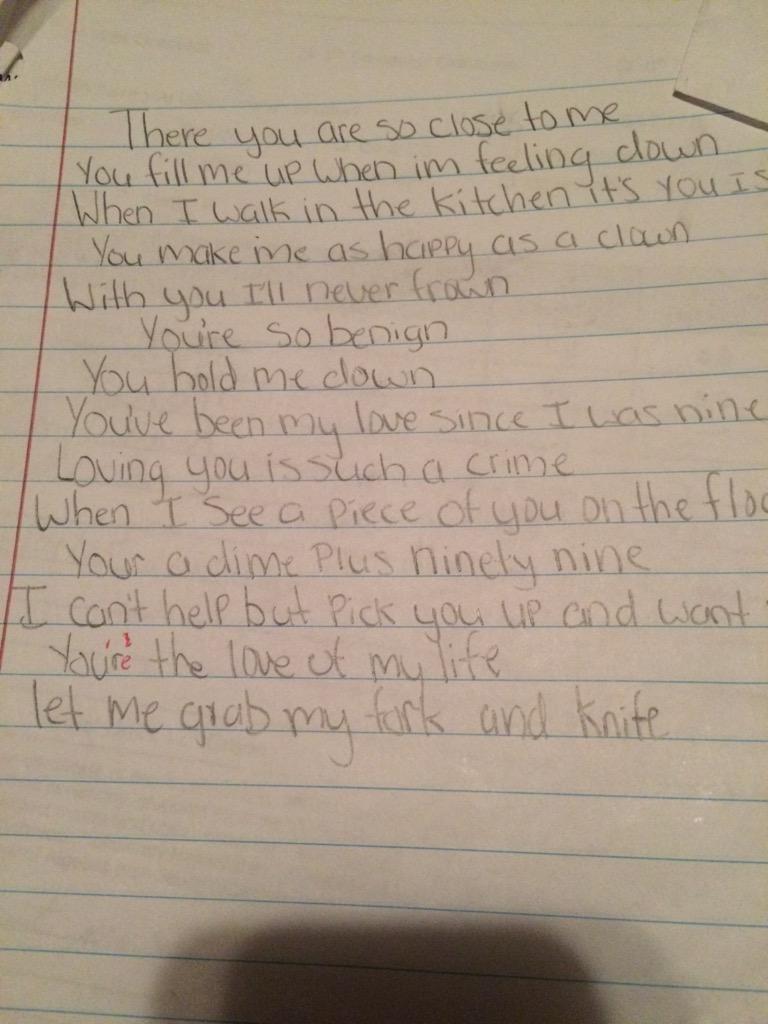 There you are so close to me
You fill me up when im feeling down
When I walk in the kitchen it's you I s
You make me as happy as a clown
With you I'll never frown
You're so benign
You hold me down
You've been my love since I was nine
Loving you is such a crime
When I see a piece of you on the floo
Your a dime plus ninety nine
I can't help but pick you up and want
You're the love of my life
let me grab my fork and knife